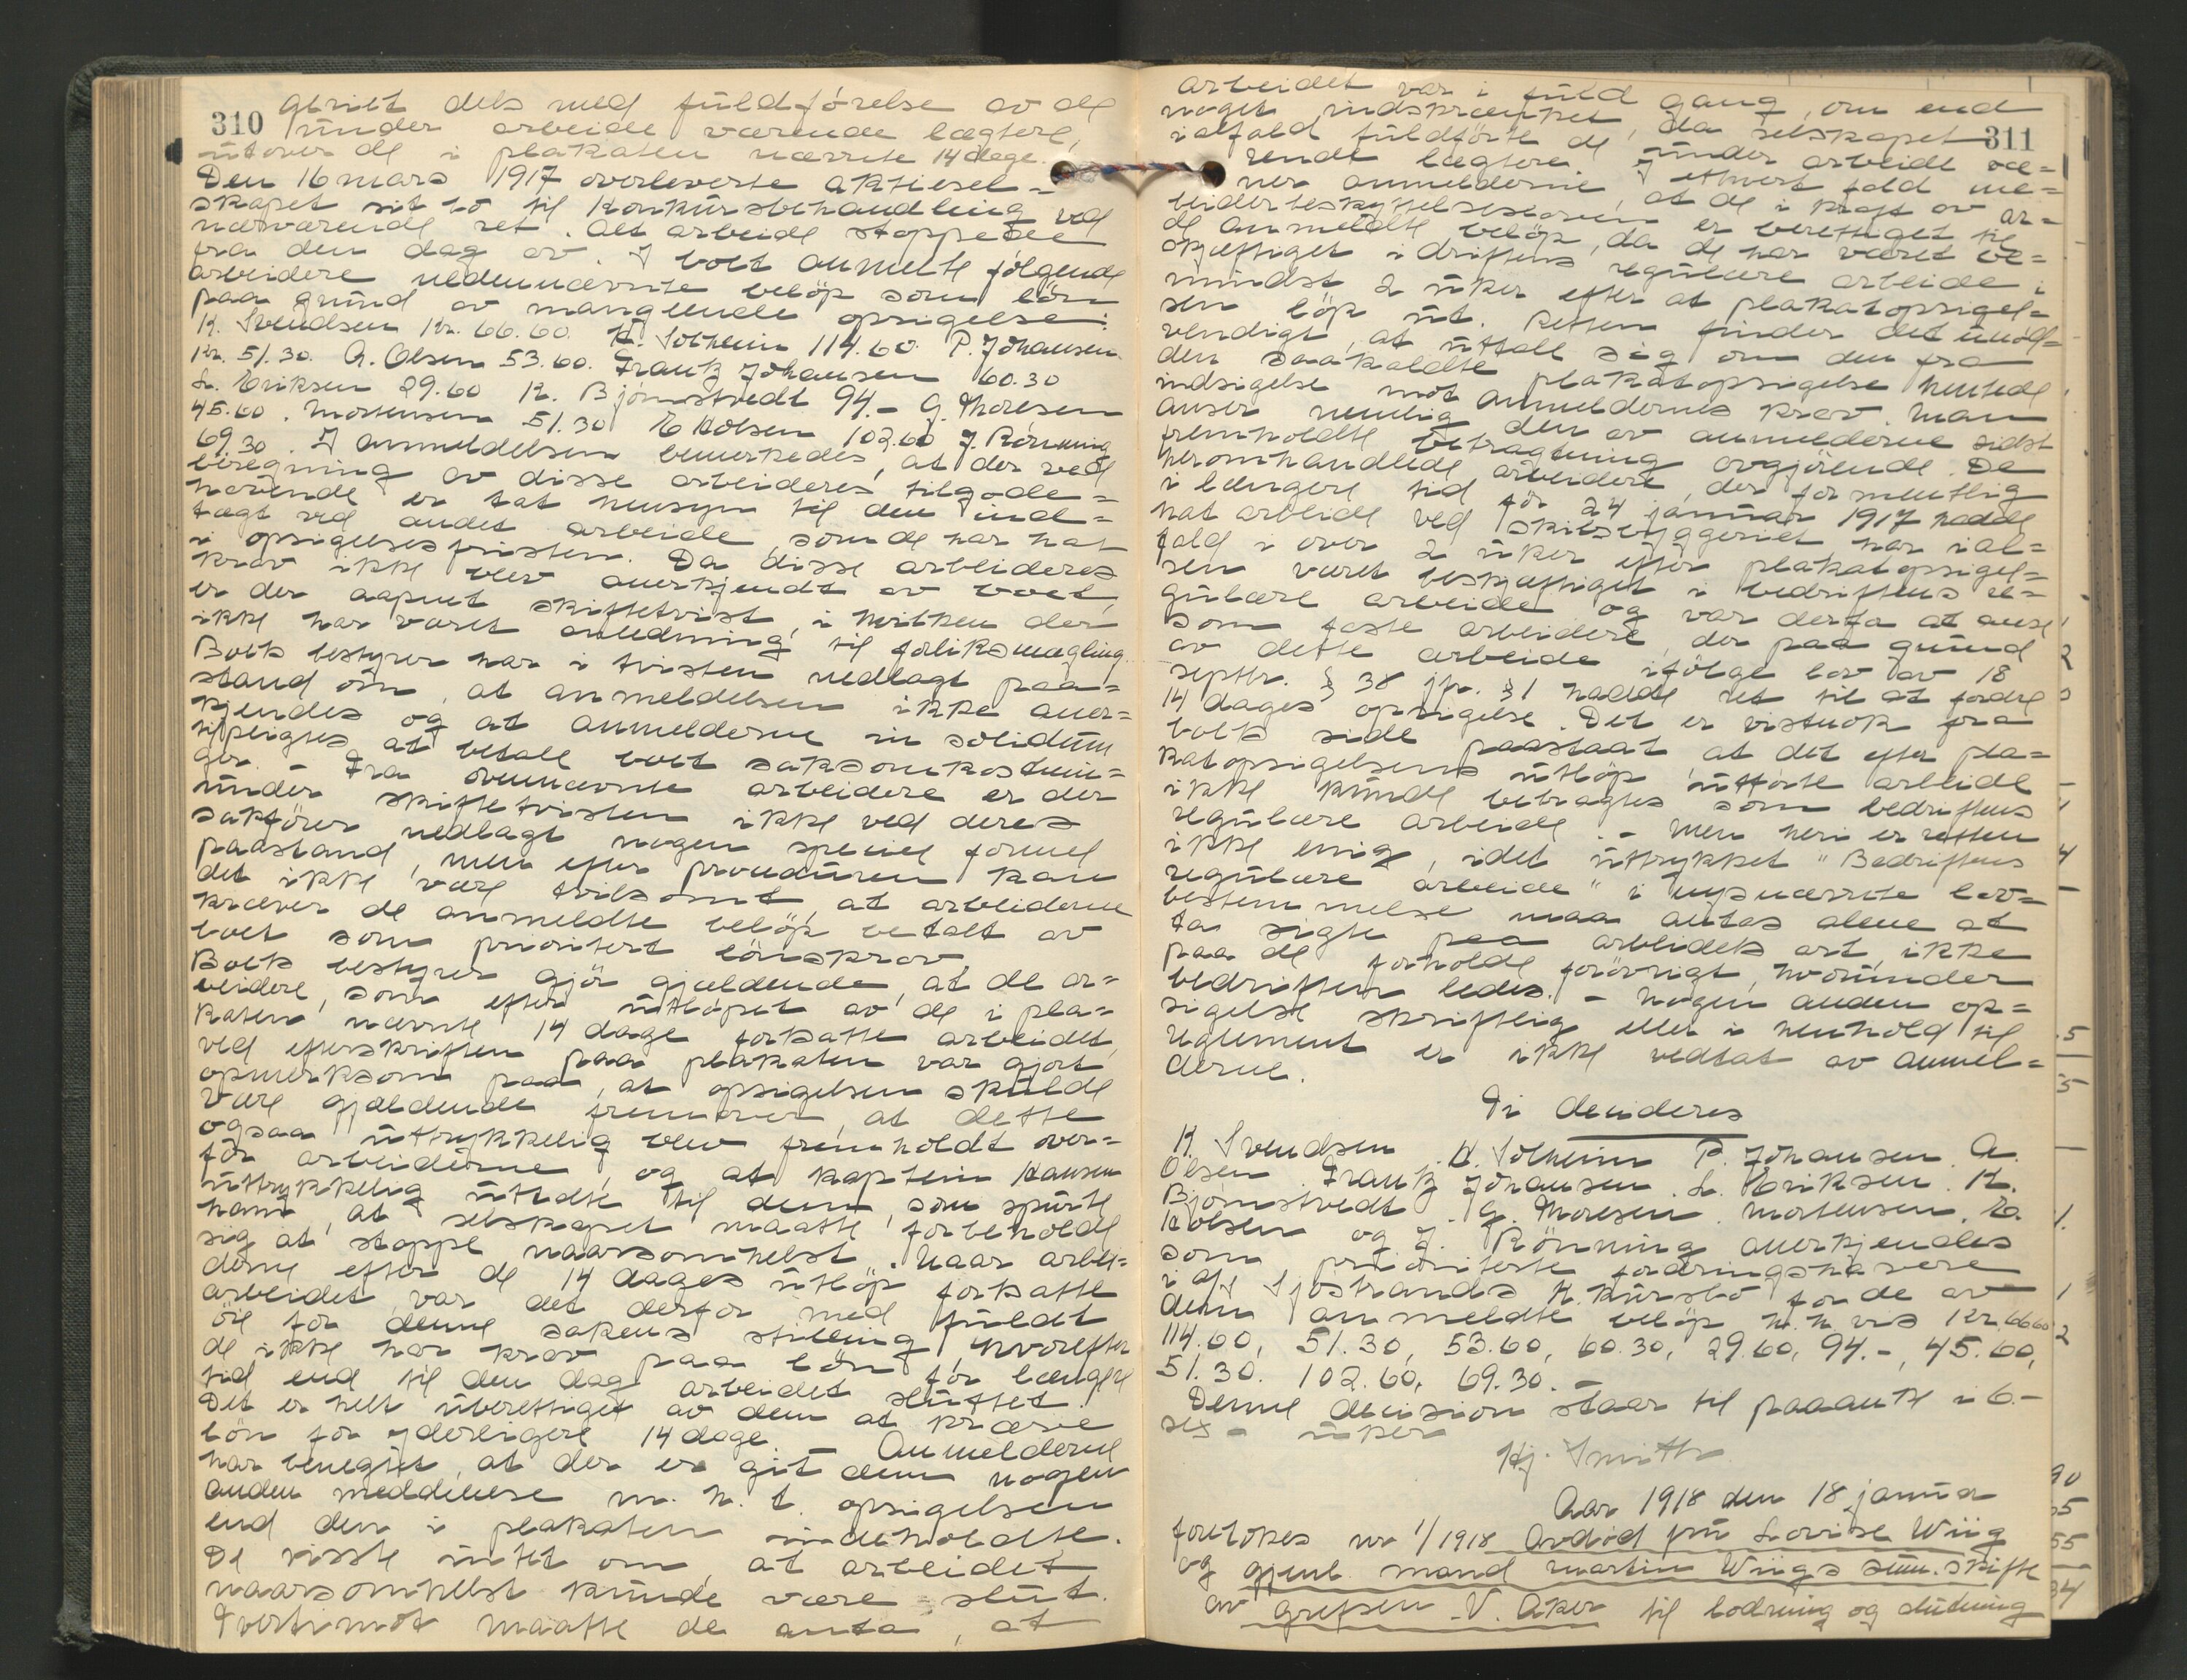 310
geriet dels med fuldførelse av de
under arbeide værende lægtere,
utover de i plakaten nævnte 14 dage.
Den 16 mars 1917 overleverte aktiesel-
skapet sit bo til konkursbehandling ved
nærværende ret. Alt arbeide stoppedes
fra den dag av. I boet anmeldte følgende
arbeidere nedennævnte beløp som løn
paa grund av manglende opsigelse:
K. Svendsen kr. 66.60. K. Solheim 114.60. P. Johansen
kr. 51.30. A. Olsen 53.60. Frantz Johansen 60.30
L. Eriksen 29.60 K. Bjørnstvedt 94.- G. Thoresen
45.60. Mortensen 51.30 E Holsen 102.60 J. Rönning
69.30. I anmeldelsen bemerkedes, at der ved
beregning av disse arbeideres tilgode-
havende er tat hensyn til den ind-
tægt ved andet arbeide, som de har hat
i opsigelsesfristen. Da disse arbeideres
krav ikke blev anerkjendt av boet,
er der aapnet skiftetvist, i hvilken der
ikke har været anledning til forliksmægling.
Boets bestyrer har i tvisten nedlagt paa-
stand om, at anmeldelsen ikke aner-
kjendes og at anmelderne in solidum
tilpligtes at betale boet saksomkostnin-
ger. - Fra ovennævnte arbeidere er der
under skiftetvisten ikke ved deres
sakfører nedlagt nogen speciel formel
paastand, men efter proceduren kan
det ikke være tvilsomt, at arbeiderne
kræver de anmeldte beløp betalt av
boet som prioritert lønskrav.
Boets bestyrer gjør gjældende, at de ar-
beidere, som efter utløpet av de i pla-
katen nævnte 14 dage fortsatte arbeidet,
ved efterskriften paa plakaten var gjort
opmerksom paa, at opsigelsen skulde
være gjældende fremover, at dette
ogsaa uttrykkelig blev fremholdt over-
for arbeiderne, og at kaptein Hansen
uttrykkelig uttalte til dem, som spurte
ham, at selskapet maatte forbeholde
sig at stoppe naarsomhelst. Naar arbei-
derne efter de 14 dages utløp fortsatte
arbeidet var det derfor med fuldt
øie for denne sakens stilling, hvorefter
de ikke har krav paa løn for længere
tid end til den dag arbeidet sluttet.
Det er helt uberettiget av dem at kræve
løn for yderligere 14 dage. - Anmelderne
har benegtet, at der er git dem nogen
anden meddelelse m. h. t. opsigelsen
end den i plakaten indeholdte.
De visste intet om, at arbeidet
naarsomhelst kunde være slut.
Tvertimot maatte de anta, at
311
arbeidet var i fuld gang, om end
noget indskrænket, da selskapet
ialfald fuldførte de under arbeide væ-
rende lægtere. I ethvert fald me-
ner anmelderne, at de i kraft av ar-
beiderbeskyttelsesloven er berettiget til
de anmeldte beløp, da de har været be-
skjæftiget i driftens regulære arbeide i
mindst 2 uker efter at plakatopsigel-
sen løp ut. Retten finder det unød-
vendigt at uttale sig om den fra
den saakaldte plakatopsigelse hentede
indsigelse mot anmeldernes krav. Man
anser nemlig den av anmelderne sidst
fremholdte betragtning avgjørende. De
heromhandlede arbeidere, der formentlig
i længere tid før 24 januar 1917 hadde
hat arbeide ved skibsbyggeriet har ial-
fald i over 2 uker efter plakatopsigel-
sen været beskjæftiget i bedriftens re-
gulære arbeide og var derfor at anse
som faste arbeidere, der paa grund
av dette arbeide ifølge lov av 18
septbr. § 38 jfr. § 1 hadde ret til at fordre
14 dages opsigelse. Det er vistnok fra
boets side paastaat at det efter pla-
katopsigelsens utløp utførte arbeide
ikke kunde betragtes som bedriftens
regulære arbeide. - Men heri er retten
ikke enig, idet uttrykket "Bedriftens
regulære arbeide" i nysnævnte lov-
bestemmelse maa antas alene at
ta sigte paa arbeidets art, ikke
paa de forholde forøvrigt, hvorunder
bedriften ledes. - Nogen anden op-
sigelse skriftlig eller i henhold til
reglement er ikke vedtat av anmel-
derne.
Ti decideres
K. Svendsen. K. Solheim P. Johansen. A.
Olsen. Frantz Johansen. L. Eriksen. K.
Bjørnstvedt. G. Thoresen. Mortensen. E.
Holsen og J. Rönning anerkjendes
som prioriterte fordringshavere
i A/S Sjøstrands K.kursbo for de av
dem anmeldte beløp h.h.vis kr. 66.60
114.60, 51.30, 53.60, 60.30, 29.60, 94.-, 45.60,
51.30. 102.60, 69.30. -
Denne decision staar til paaanke i 6-
sex - uker
Hj. Smith
Aar 1918 den 18 januar
foretokes nr 1/1918 Avdød fru Lovise Wiig
og gjenl. mand Martin Wiigs sam. skifte
av Grefsen V. Aker til lodning og slutning